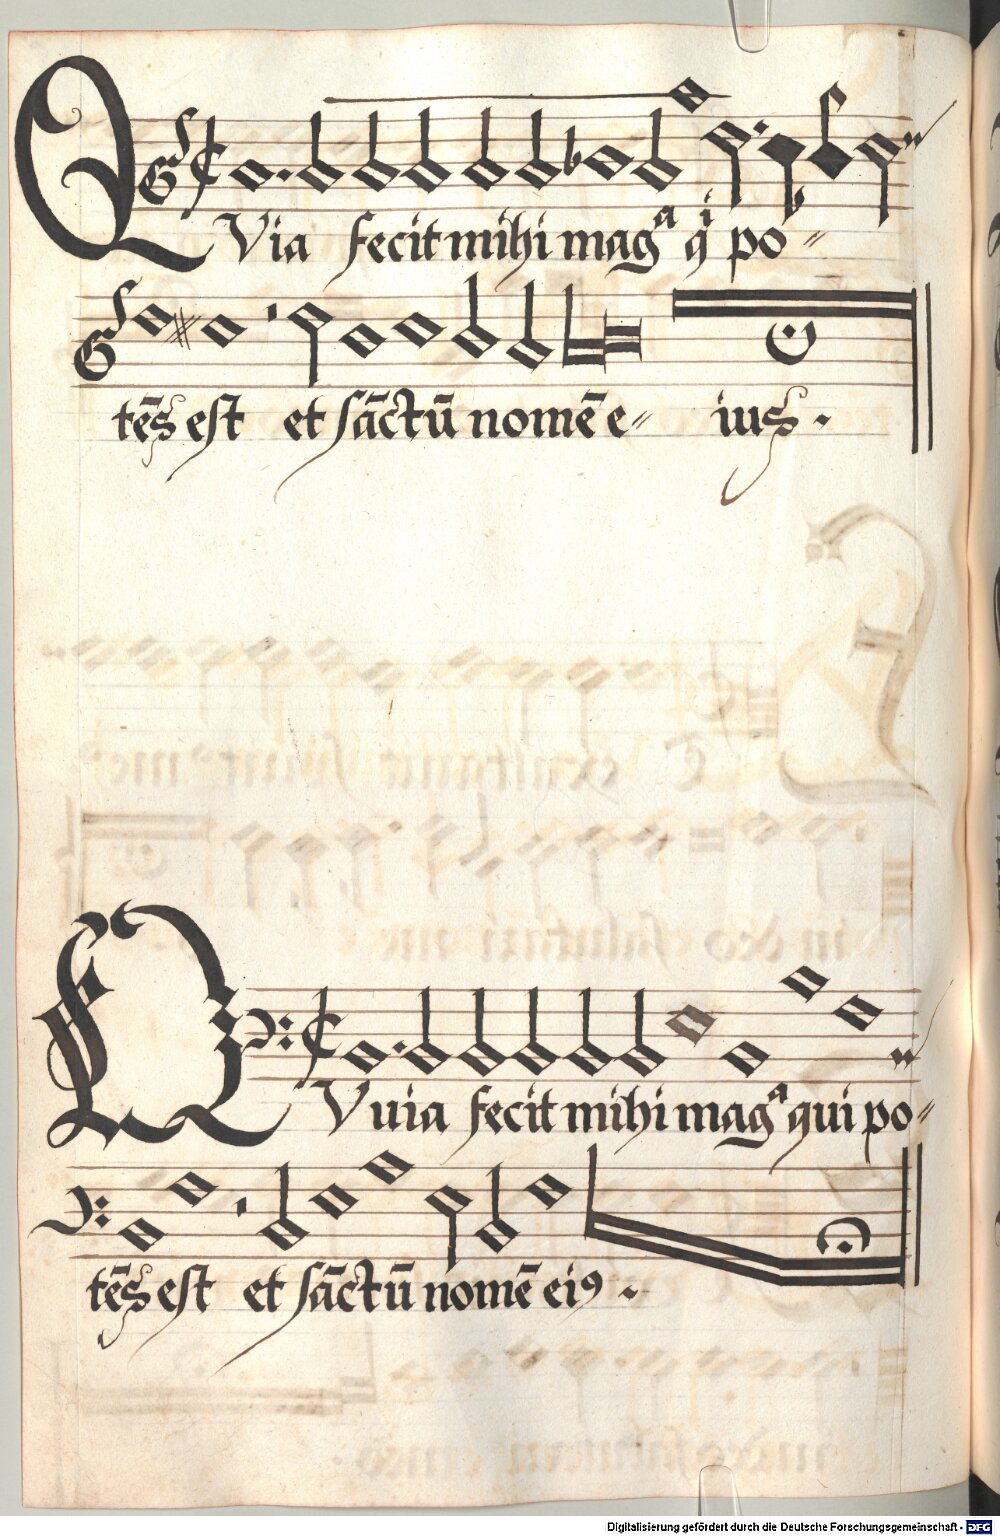 QVia fecit mihi magᵃ qⁱ po〃
tēs est et sāctū nomē e〃 ius.
QVuia fecit mihi magᵃ qui po〃
tēs est et sāctū nomē eiꝰ.
Digitalisierung gefördert durch die Deutsche Forschungsgemeinschaft - DFG